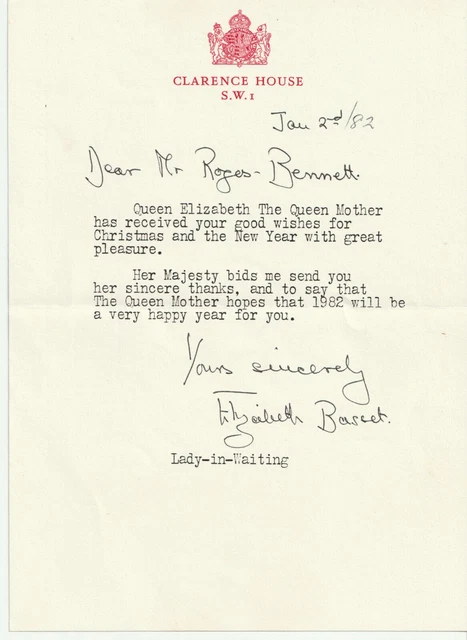 CLARENCE HOUSE
S.W.1
Jan 2nd/82
Dear Mr Roges-Bennett.
Queen Elizabeth The Queen Mother
has received your good wishes for
Christmas and the New Year with great
pleasure.
Her Majesty bids me send you
her sincere thanks, and to say that
The Queen Mother hopes that 1982 will be
a very happy year for you.
Yours sincerely
Elizabeth Basset.
Lady-in-Waiting